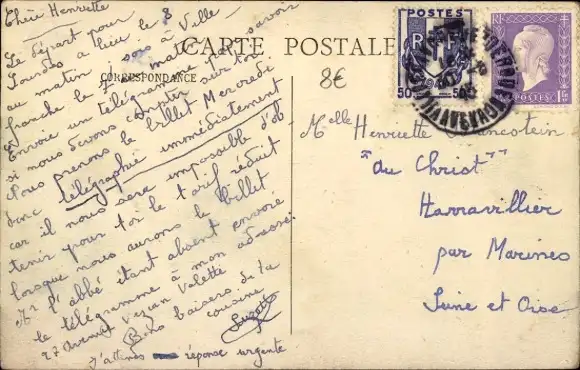 Chère Henriette
Le départ pour
Lourdes a lieu le 8
au matin sois à Ville
franche le 7 matin
Envoie un télégramme savoir
si nous devons compter sur toi
Nous prenons le billet Mercredi
donc télégraphie immédiatement
car il nous sera impossible d'ob
tenir pour toi le tarif réduit
lorsque nous aurons le billet
Mr l'abbé étant absent envoie
le télégramme à mon adresse:
27 Avenue Valette
Bons baisers de ta
cousine
Suzon
J'attends réponse urgente
CARTE POSTALE
CORRESPONDANCE
8€
POSTES
RF
50 50
POSTES 1F50
Melle Henriette
"Au Christ"
Harravillier
par Marines
Seine et Oise